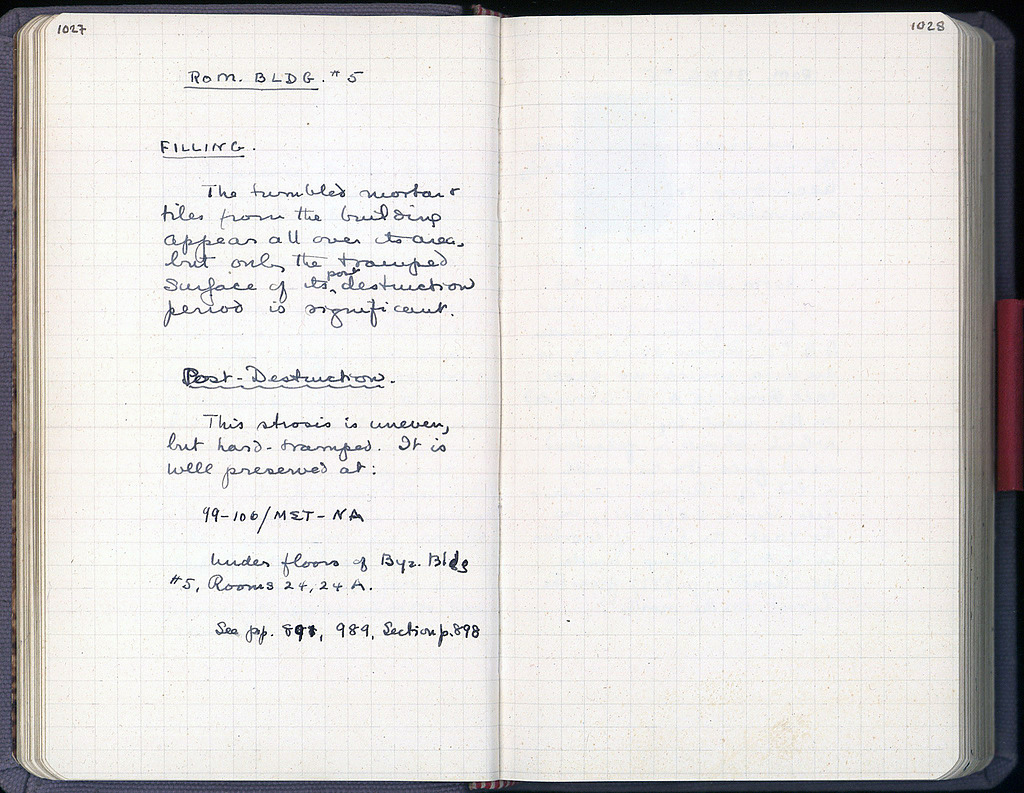 1027
1028
ROM. BLDG. #5
FILLING.
The tumbled mortar &
tiles from the building
appear all over its area,
but only the tramped
surface of its post destruction
period is significant.
Post-Destruction.
This strosis is uneven,
but hard-tramped. It is
well preserved at:
99-106/MΣT-NA
Under floors of Byz. Bldg
#5, Rooms 24, 24 A.
See pp. 989, Section p. 898